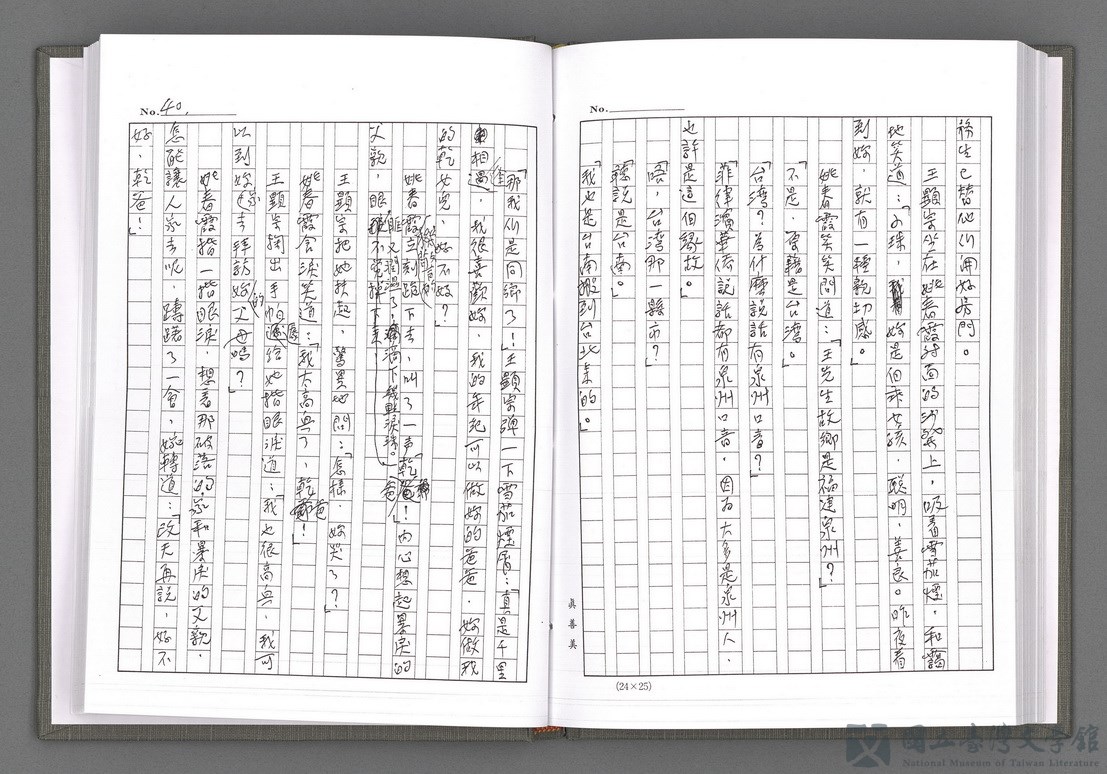 No.
務生已替他们開好房門。
王顯宗坐在姚春霞対面的沙發上，吸着雪茄煙，和藹
地笑道：「小珠，妳是個乖女孩，聰明，善良。昨夜看
到妳，就有一種親切感。」
姚春霞笑笑問道：「王先生故鄉是福建泉州？」
「不是，原籍是台湾。」
「台湾？為什麼說話有泉州口音？」
「菲律濱華僑說話都有泉州口音，因為大多是泉州人，
也許是這個緣故。」
「唔，台湾那一縣市？」
「聽說是台南。」
「我也是台南搬到台北来的。」
真善美
(24×25)
No. 40.
「那我们是同鄉了！」王顯宗彈一下雪茄煙屑：「真是千里
相遇，我很喜歡妳，我的年紀可以做妳的爸爸，妳做我
的乾女兒，好不好？」
姚春霞立刻跪下去，叫了一声「乾爸！」内心想起暴戾的
父親，眼眶又濕了，滴下幾顆淚珠。
王顯宗把她扶起，驚異地問：「怎樣，妳哭了？」
姚春霞含淚笑道：「我太高興了，乾爸！」
王顯宗掏出手帕遞給她揩眼淚道：「我也很高興，我可
以到妳家去拜訪妳的父母嗎？」
姚春霞揩一揩眼淚，想着那破落的家和暴戾的父親，
怎能讓人家去呢，躊躇了一會，婉轉道：「改天再說，好不
好，乾爸！」
國立臺灣文學館
National Museum of Taiwan Literature